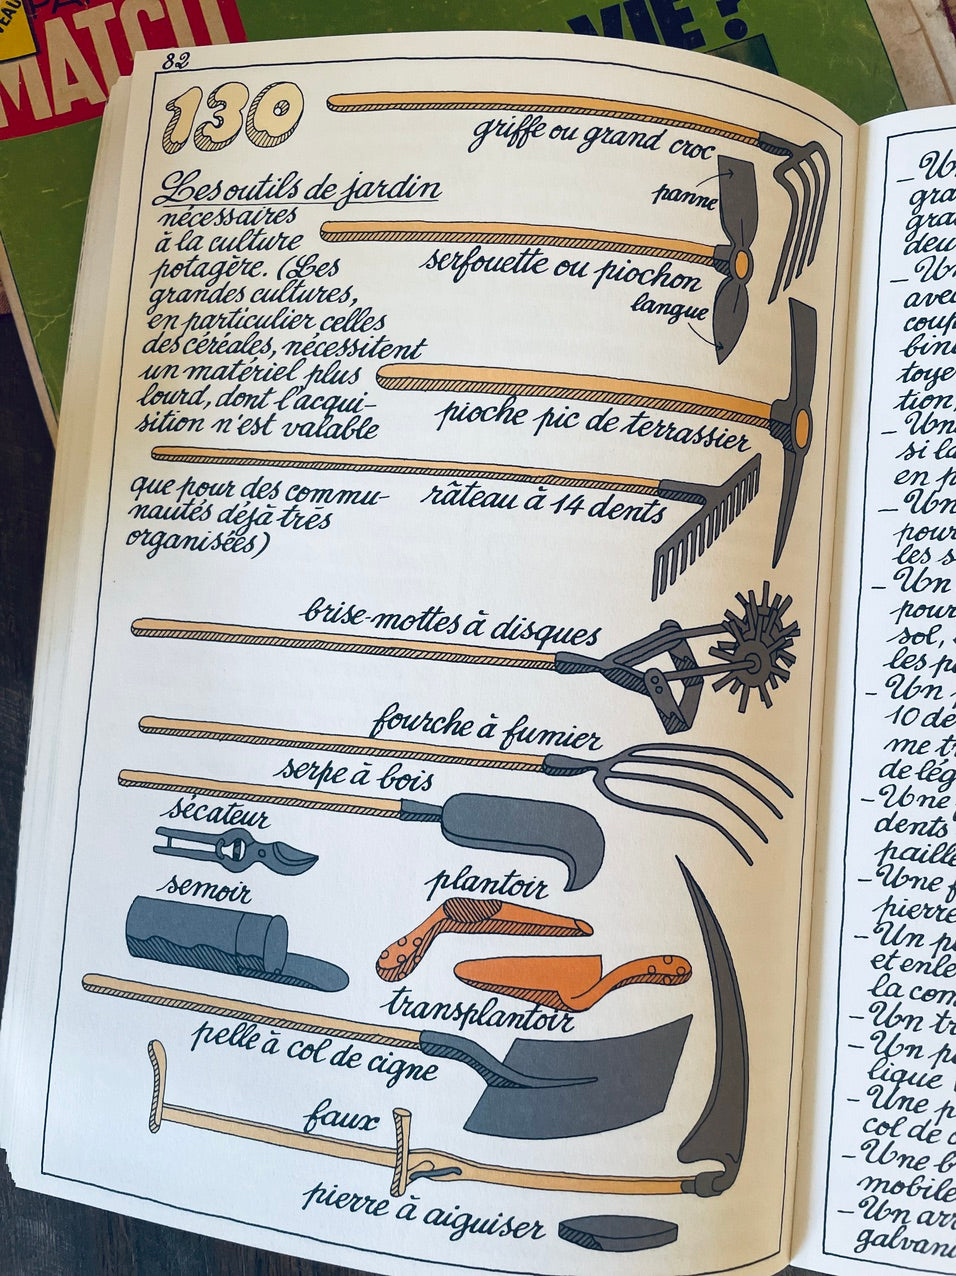 MATCH
VIE ?
82
130
Les outils de jardin
nécessaires
à la culture
potagère. (Les
grandes cultures,
en particulier celles
des céréales, nécessitent
un matériel plus
lourd, dont l'acqui-
sition n'est valable
que pour des commu-
nautés déjà très
organisées)
griffe ou grand croc
panne
serfouette ou piochon
langue
pioche pic de terrassier
râteau à 14 dents
brise-mottes à disques
fourche à fumier
serpe à bois
sécateur
semoir
plantoir
transplantoir
pelle à col de cigne
faux
pierre à aiguiser
_ Un
deu
_ Un
ave
coup
bin
toye
tion,
_ Un
si la
en p
_ Un
pour
les s
_ Un
pour
sol,
les p
_ Un
10 dé
me t
de lég
_ Une
dents
paille
_ Une f
pierre
_ Un p
et enle
la com
_ Un tr
_ Un p
lique
_ Une p
col de c
_ Une b
mobile
_ Un arr
galvan